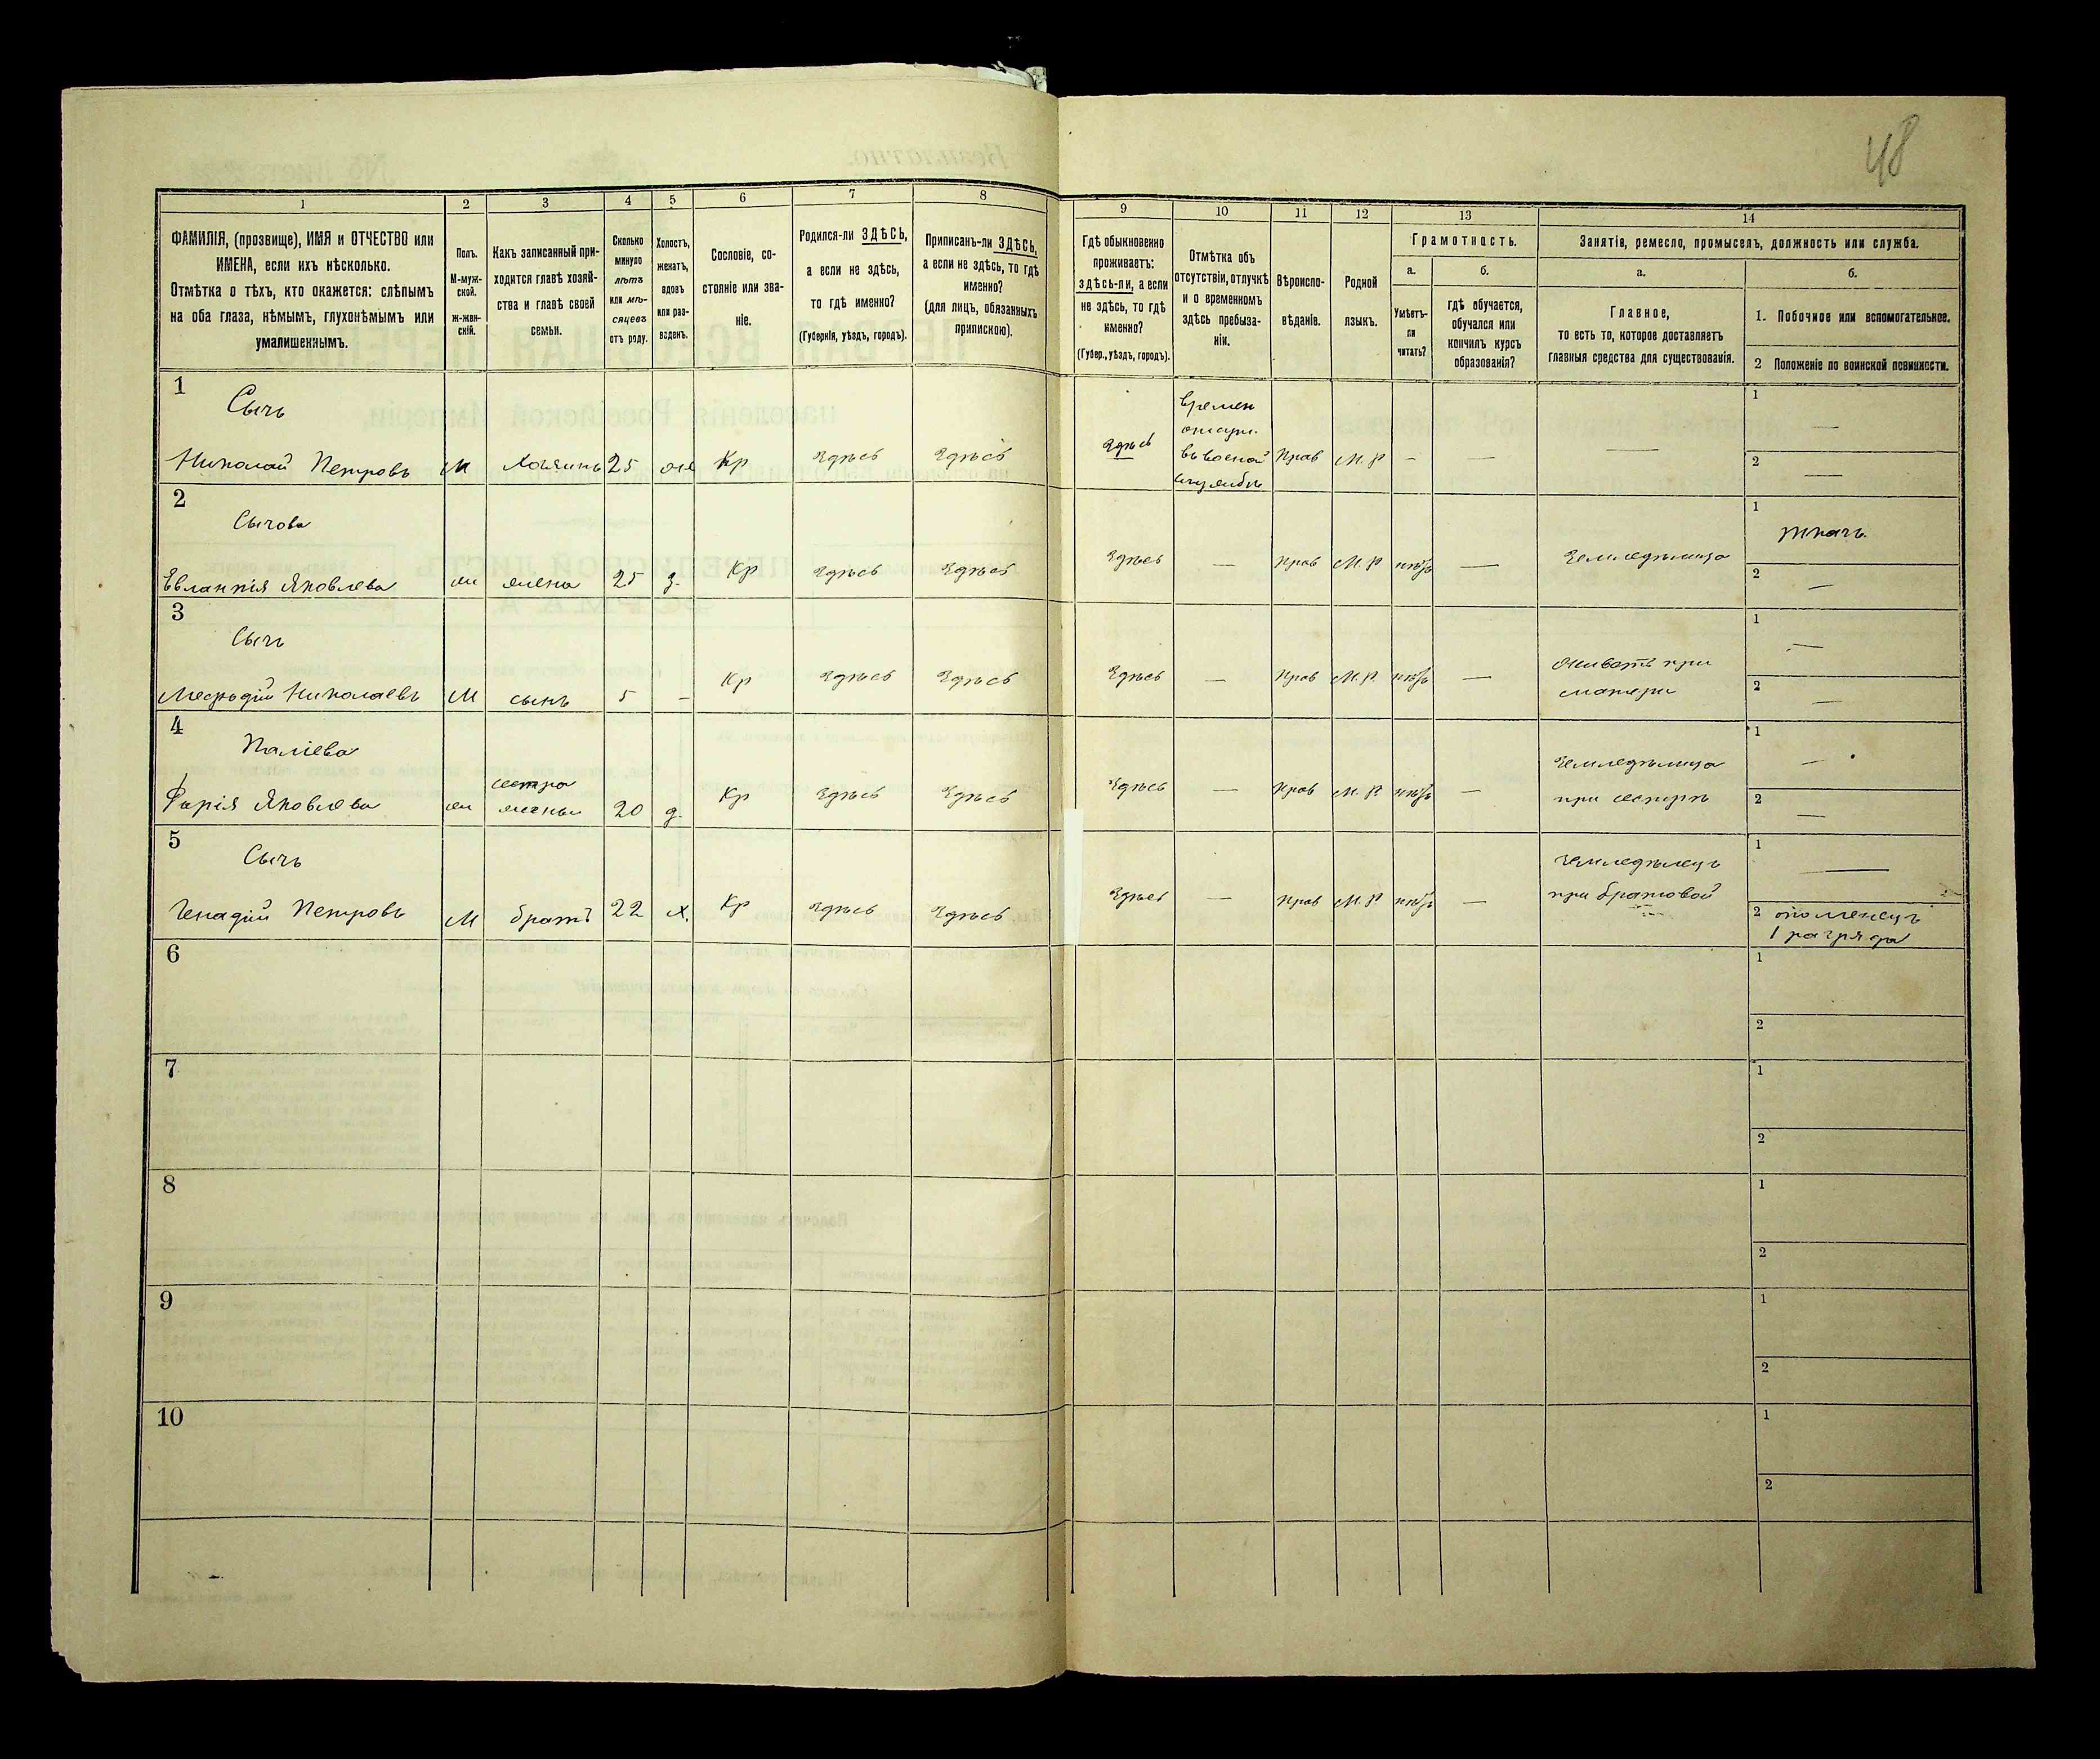 48
1
2
3
4
5
6
7
8
9
10
11
12
13
14
ФАМИЛІЯ, (прозвище), ИМЯ и ОТЧЕСТВО или
ИМЕНА, если ихъ нѣсколько.
Отмѣтка о тѣхъ, кто окажется: слѣпымъ
на оба глаза, нѣмымъ, глухонѣмымъ или
умалишеннымъ.
Полъ.
М-муж-
ской.
ж-жен-
скій.
Какъ записанный при-
ходится главѣ хозяй-
ства и главѣ своей
семьи.
Сколько
минуло
лѣтъ
или мѣ-
сяцевъ
отъ роду.
Холостъ,
женатъ,
вдовъ
или раз-
веденъ.
Сословіе, со-
стояніе или зва-
ніе.
Родился-ли ЗДѢСЬ,
а если не здѣсь,
то гдѣ именно?
(Губернія, уѣздъ, городъ).
Приписанъ-ли ЗДѢСЬ,
а если не здѣсь, то гдѣ
именно?
(для лицъ, обязанныхъ
припискою).
Гдѣ обыкновенно
проживаетъ:
здѣсь-ли, а если
не здѣсь, то гдѣ
именно?
(Губер., уѣздъ, городъ).
Отмѣтка объ
отсутствіи, отлучкѣ
и о временномъ
здѣсь пребыва-
ніи.
Вѣроиспо-
вѣданіе.
Родной
языкъ.
Грамотность.
а.
б.
Умѣетъ-
ли
читать?
гдѣ обучается,
обучался или
кончилъ курсъ
образованія?
Занятія, ремесло, промыселъ, должность или служба.
а.
б.
Главное,
то есть то, которое доставляетъ
главныя средства для существованія.
1. Побочное или вспомогательное.
2 Положеніе по воинской повинности.
1
Сычъ
Николай Петровъ М Хозяинъ 25 ж Кр Здѣсь Здѣсь Здѣсь
времен
отсут.
въ военой
службѣ
Прав М.Р - — —
1 —
2 —
2
Сычова
Евлампія Яковлева ж жена 25 з. Кр Здѣсь Здѣсь Здѣсь — Прав М.Р нѣтъ — Земледѣлица
1 ткачъ
2 —
3
Сычъ
Мефодій Николаевъ М сынъ 5 – Кр Здѣсь Здѣсь Здѣсь — Прав М.Р. нѣтъ —
живетъ при
матери
1 —
2 —
4
Паліева
Яковлева ж
сестра
жены
20 д. Кр Здѣсь Здѣсь Здѣсь — Прав М.Р. нѣтъ —
Земледѣлица
при сестрѣ
1 —
2 —
5
Сычъ
Генадій Петровъ М братъ 22 х. Кр Здѣсь Здѣсь Здѣсь — Прав М.Р нѣтъ —
Земледѣлецъ
при братовой
1 —
2 ополченецъ
1 разряда
6
1
2
7
1
2
8
1
2
9
1
2
10
1
2